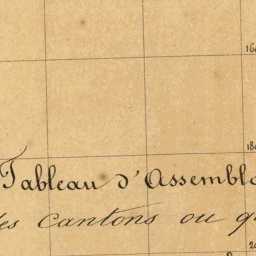 16
18
Tableau d'Assembl
les cantons ou q
2